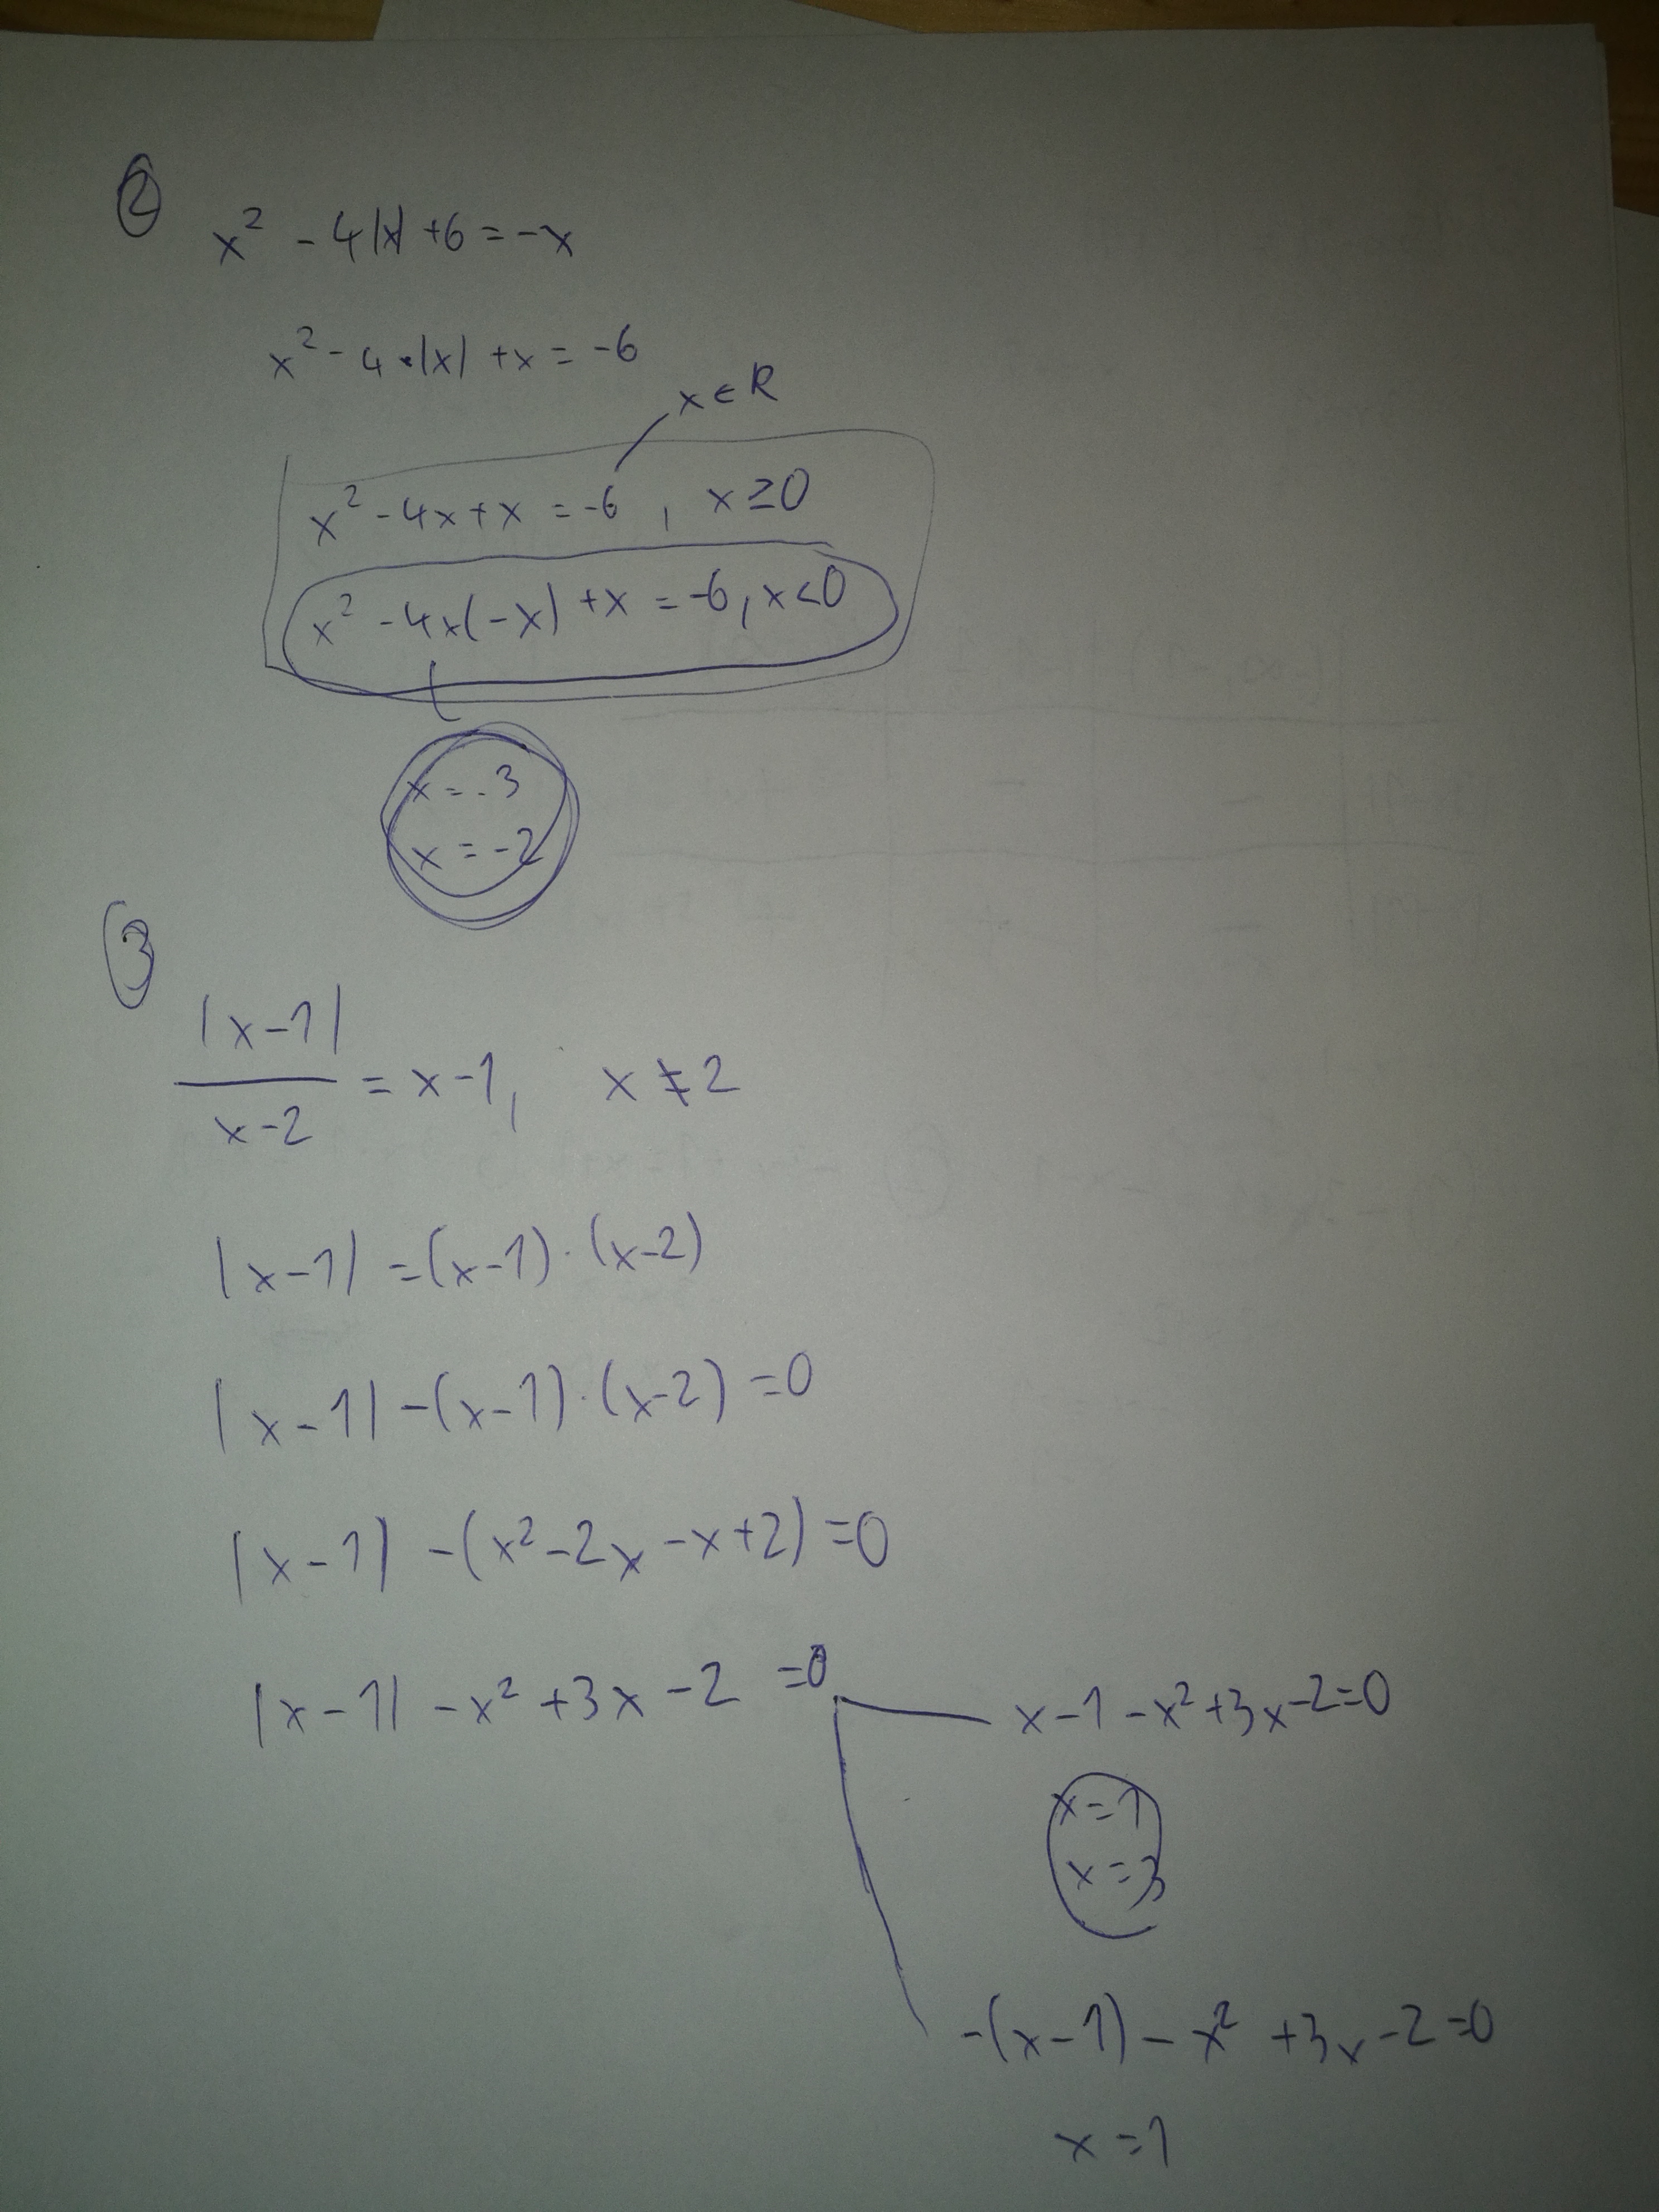 2
x² - 4|x| +6 = -x
x² - 4·|x| + x = -6
x ∈ R
x² - 4x + x = -6 , x ≥ 0
x² - 4x(-x) + x = -6, x < 0
x = -3
x = -2
3
|x-1|
x-2
= x-1, x ≠ 2
|x-1| = (x-1)·(x-2)
|x-1| -(x-1)·(x-2) = 0
|x-1| -(x²-2x-x+2) = 0
|x-1| - x² + 3x - 2 = 0
x-1-x²+3x-2=0
x=1
x=3
-(x-1) - x² + 3x - 2 = 0
x = 1